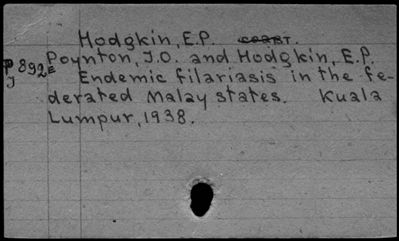 Hodgkin, E.P. coaut.
P 892E Poynton, J.O. and Hodgkin, E.P.
J Endemic filariasis in the fe-
derated Malay states. Kuala
Lumpur, 1938.